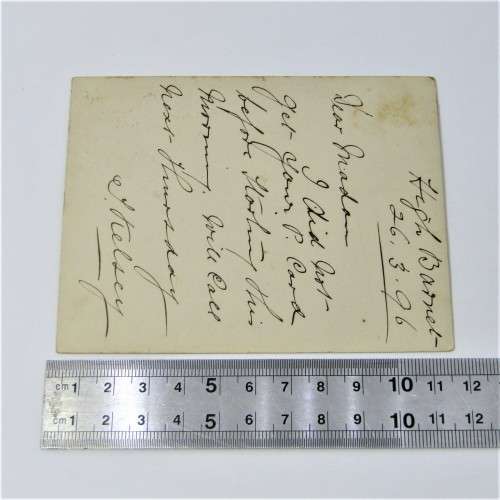 High Barnet
26.3.96
Dear Madam
I did not
get your P. Card
before starting this
morning will call
next Thursday
J. Kelsey
cm 1 2 3 4 5 6 7 8 9 10 11 12
cm 1 2 3 4 5 6 7 8 9 10 11 12